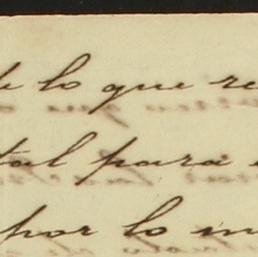 de lo que re
tal para
por lo in